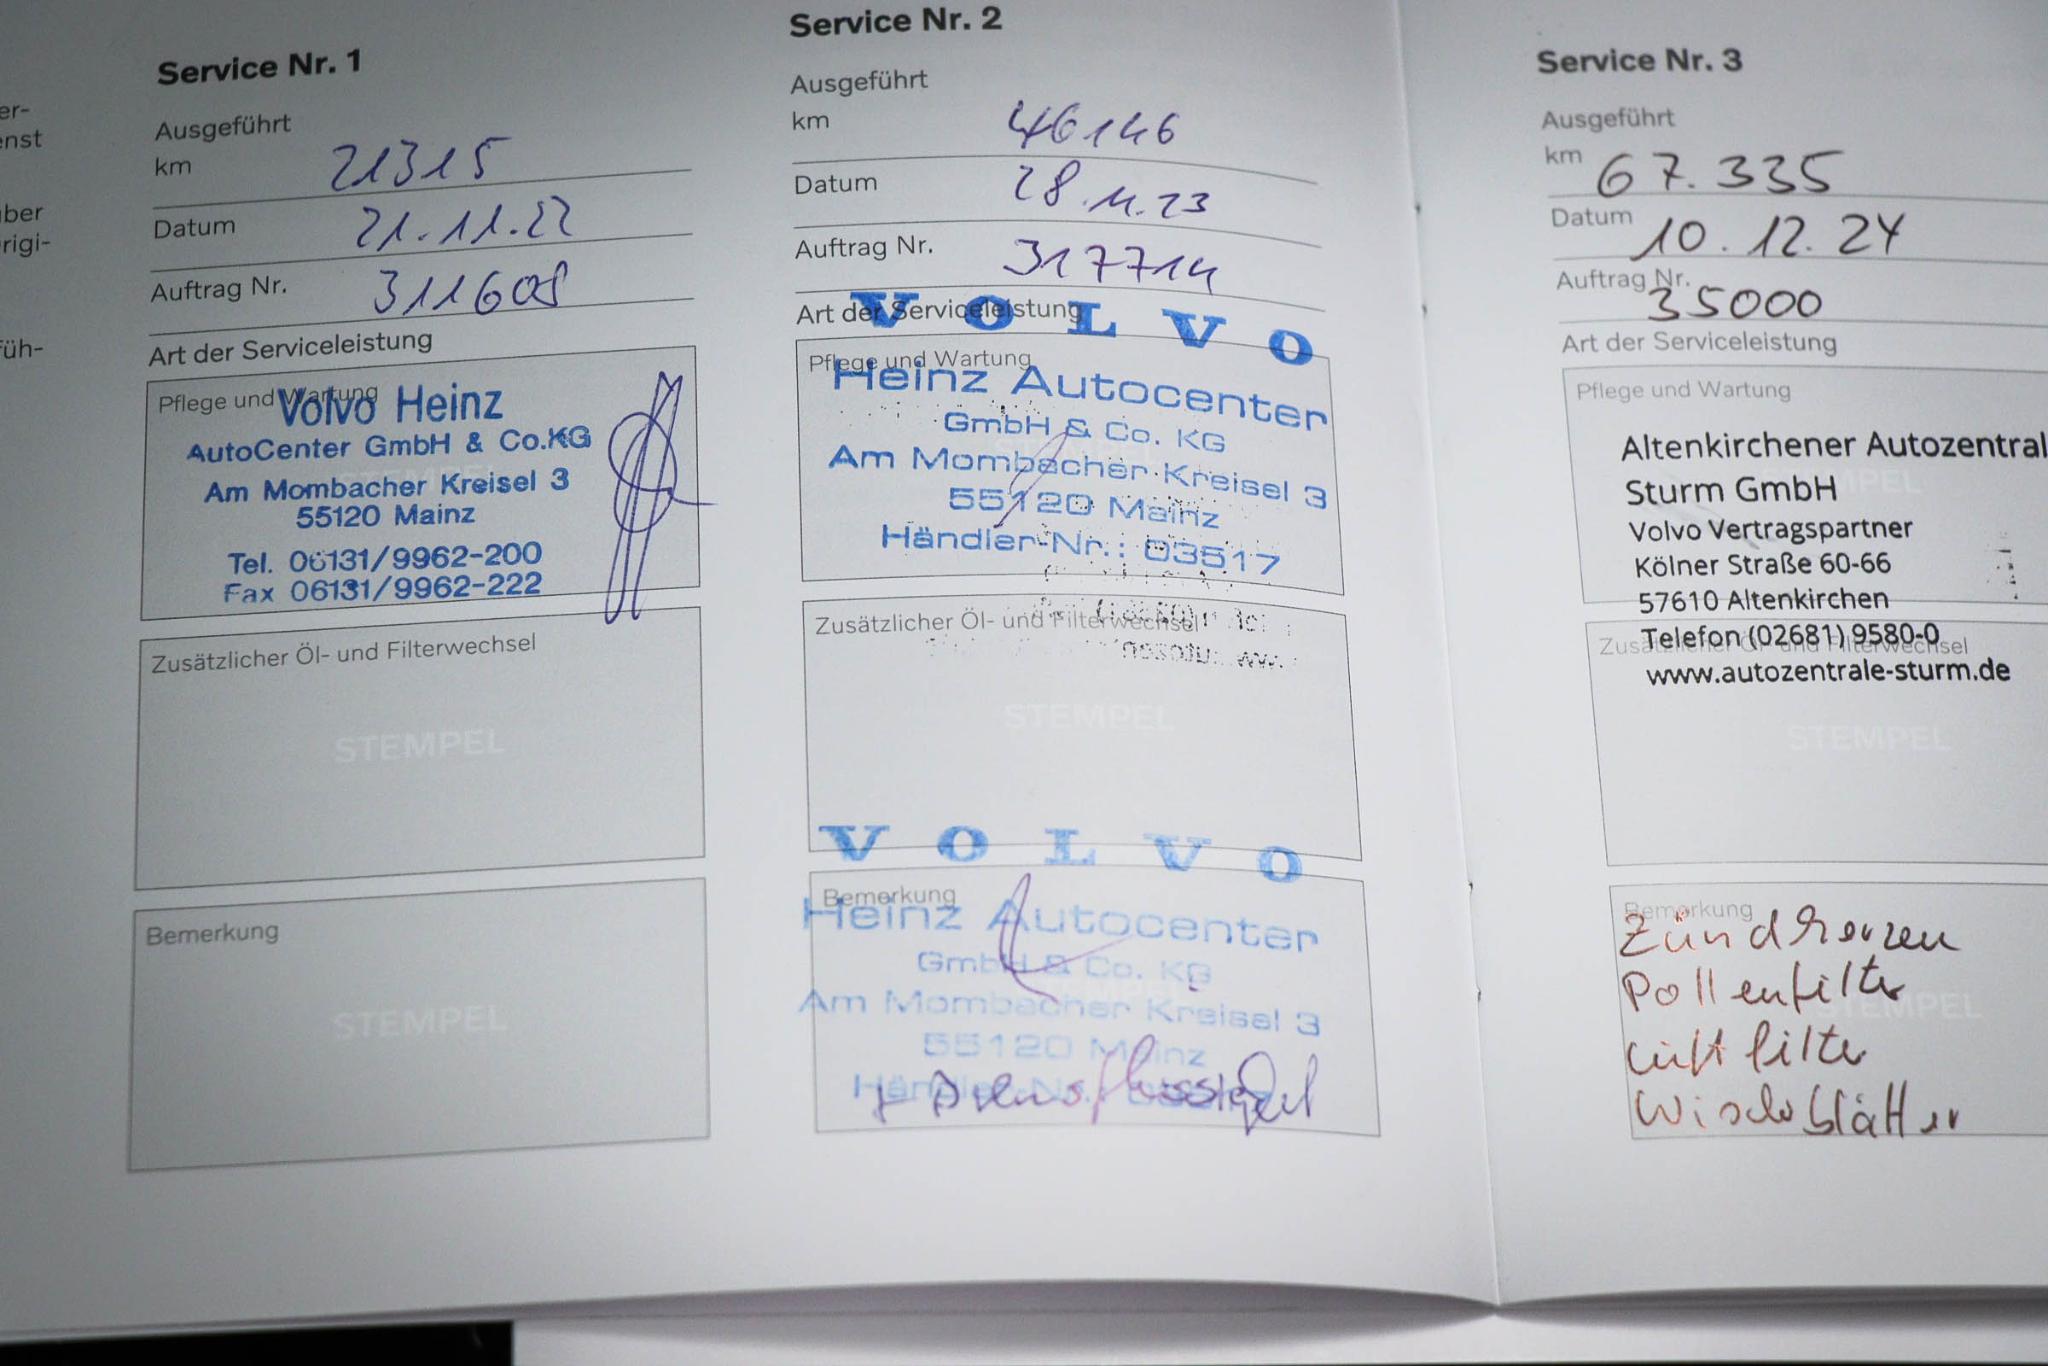 er-
enst
über
Origi-
füh-
Service Nr. 1
Ausgeführt
km 21315
Datum 21.11.22
Auftrag Nr. 311608
Art der Serviceleistung
Pflege und Wartung
Volvo Heinz
AutoCenter GmbH & Co.KG
Am Mombacher Kreisel 3
55120 Mainz
Tel. 06131/9962-200
Fax 06131/9962-222
Zusätzlicher Öl- und Filterwechsel
STEMPEL
Bemerkung
STEMPEL
Service Nr. 2
Ausgeführt
km 46146
Datum 28.11.23
Auftrag Nr. 317714
Art der Serviceleistung
VOLVO
Pflege und Wartung
Heinz Autocenter
GmbH & Co. KG
Am Mombacher Kreisel 3
55120 Mainz
Händler-Nr.: 03517
Zusätzlicher Öl- und Filterwechsel
STEMPEL
VOLVO
Bemerkung
Heinz Autocenter
GmbH & Co. KG
Am Mombacher Kreisel 3
55120 Mainz
Händler-Nr.
+ Bremsflüssigkeit
Service Nr. 3
Ausgeführt
km 67.335
Datum 10.12.24
Auftrag Nr. 35000
Art der Serviceleistung
Pflege und Wartung
Altenkirchener Autozentral
Sturm GmbH
Volvo Vertragspartner
Kölner Straße 60-66
57610 Altenkirchen
Telefon (02681) 9580-0
Zusätzlicher Öl- und Filterwechsel
www.autozentrale-sturm.de
STEMPEL
Bemerkung
Zündkerzen
Pollenfilter
Luftfilter
Wischblätter